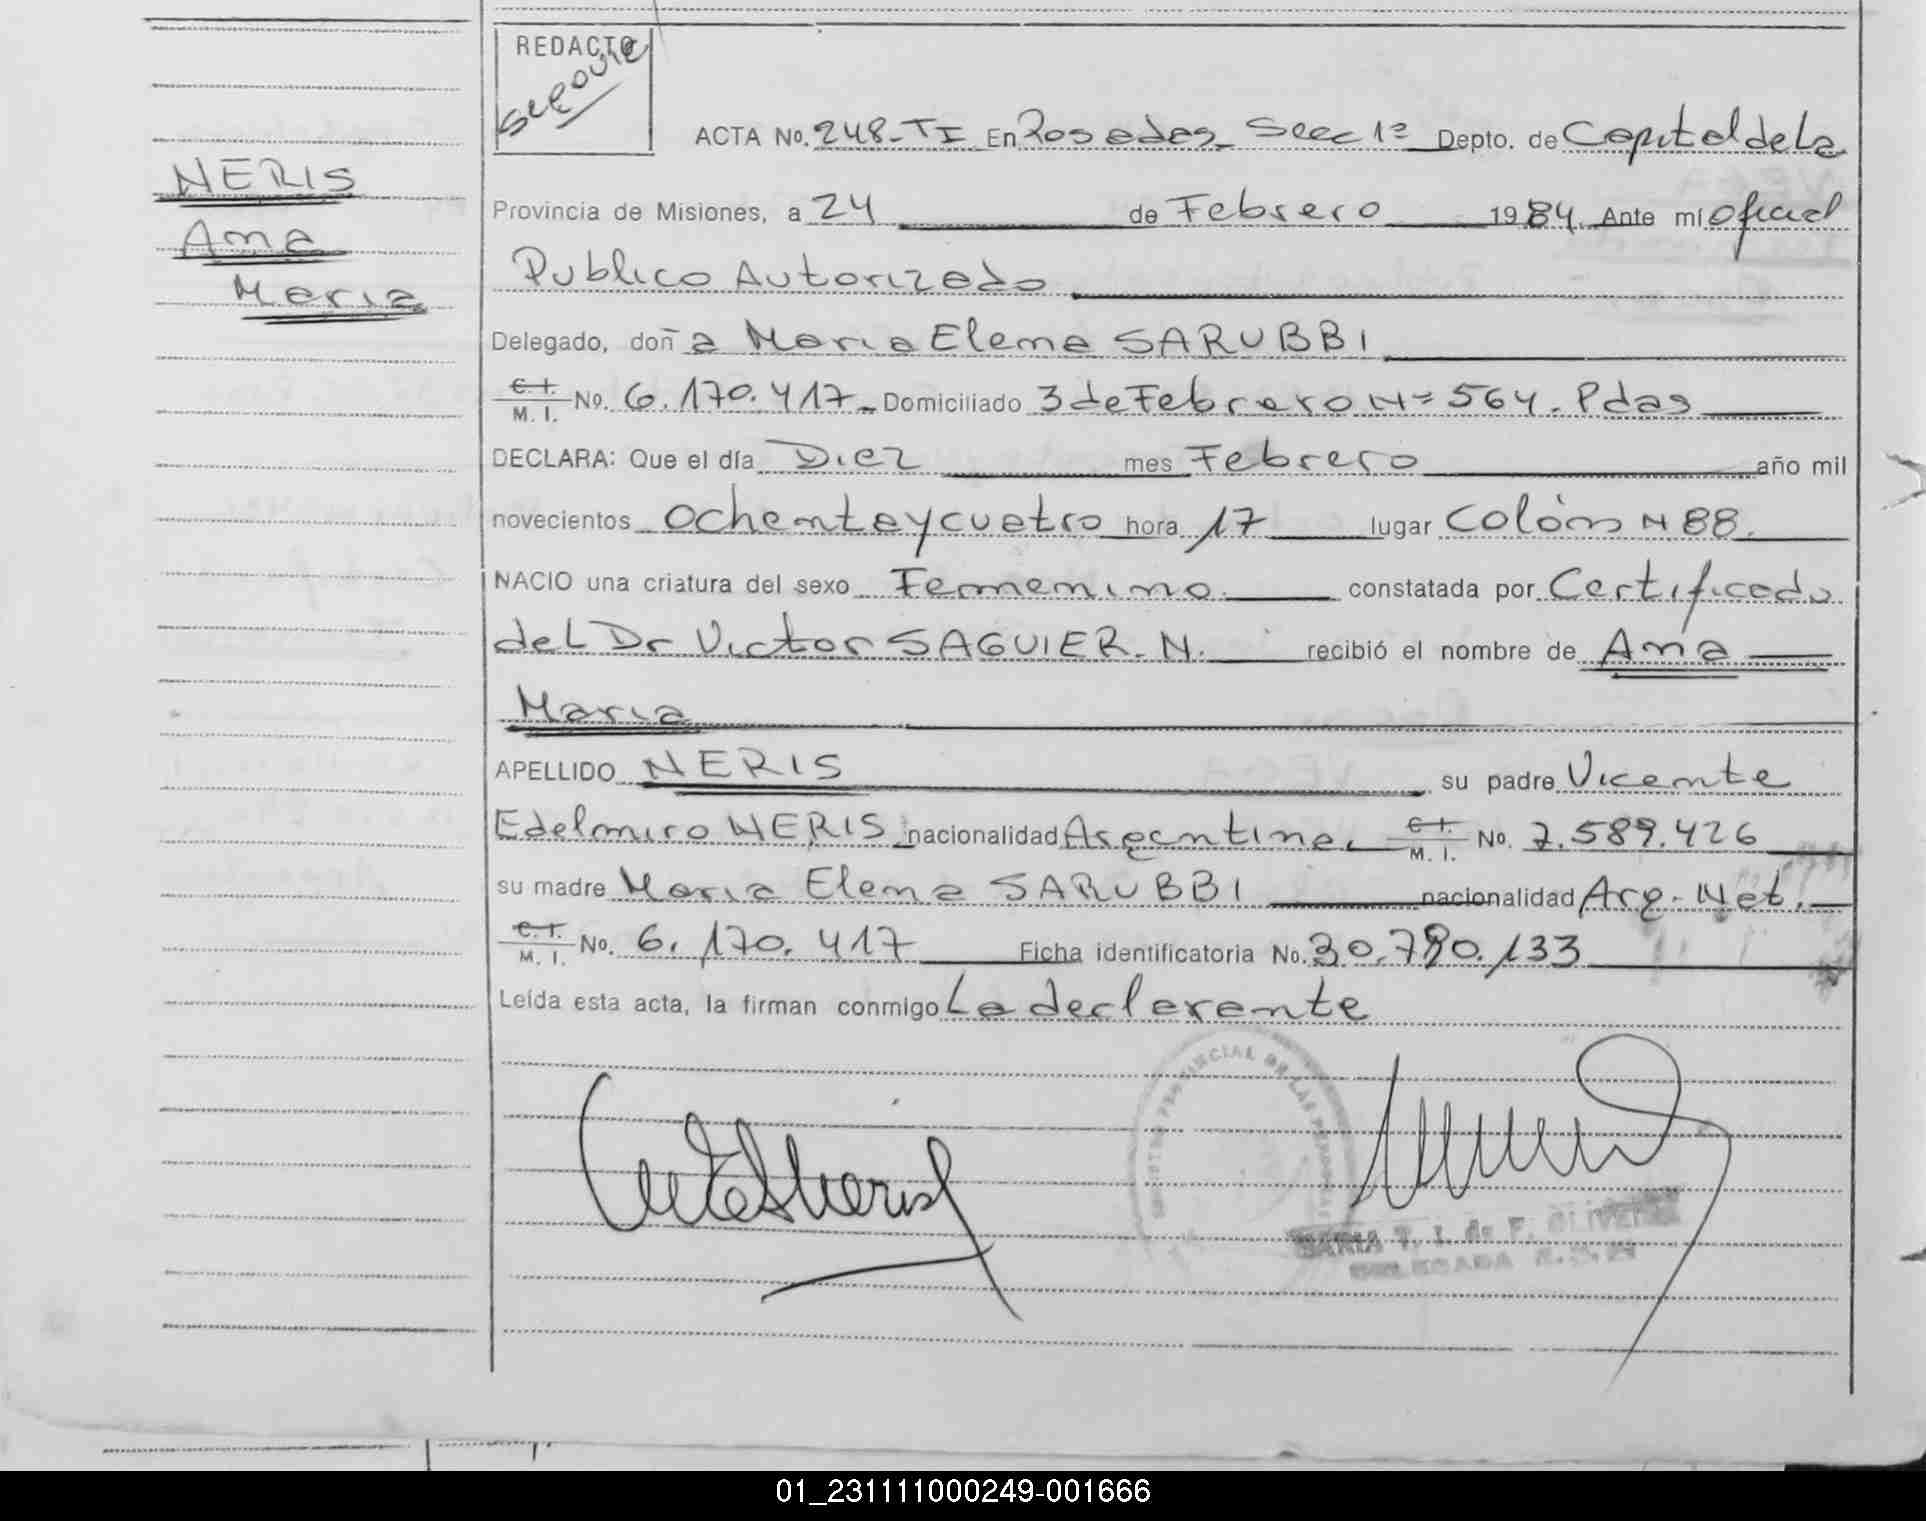 REDACTO
Segovia
NERIS
Ana
Maria
ACTA No. 248-TI En Posadas Secc 1ª Depto. de Capital de La
Provincia de Misiones, a 24 de Febrero 1984. Ante mí oficial
Publico Autorizado
Delegado, doñ a Maria Elena SARUBBI
C. I. M. I. No. 6.170.417 Domiciliado 3 de Febrero Nº 564. Pdas
DECLARA: Que el día Diez mes Febrero año mil
novecientos ochenta y cuatro hora 17 lugar Colón N 88.
NACIO una criatura del sexo Femenino constatada por Certificado
del Dr Victor SAGUIER. N. recibió el nombre de Ana
Maria
APELLIDO NERIS su padre Vicente
Edelmiro NERIS nacionalidad Argentina. C. I. M. I. No. 7.589.426
su madre Maria Elena SARUBBI nacionalidad Arg. Nat.
C. I. M. I. No. 6.170.417 Ficha identificatoria No. 30.790.133
Leída esta acta, la firman conmigo La declarante
PROVINCIAL DE LAS PERSONAS
MARIA T. I. de F. OLIVEIRA
DELEGADA
01_231111000249-001666